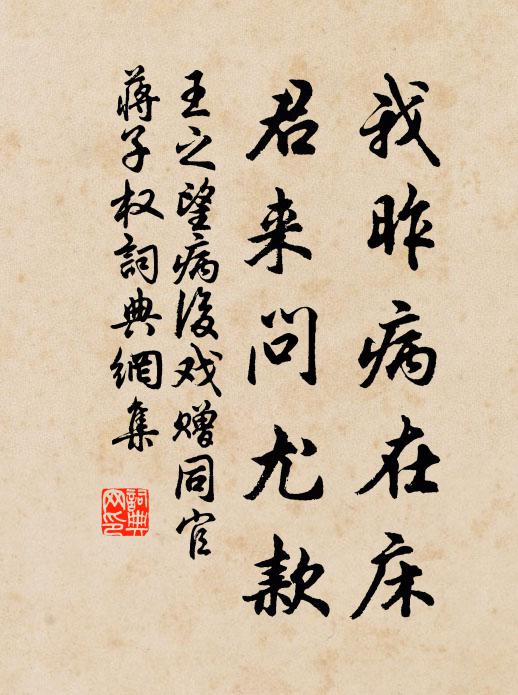 我昨病在床
君来问尤款
王之望病後戏赠同官
蒋子权詞典網集
詞典网印